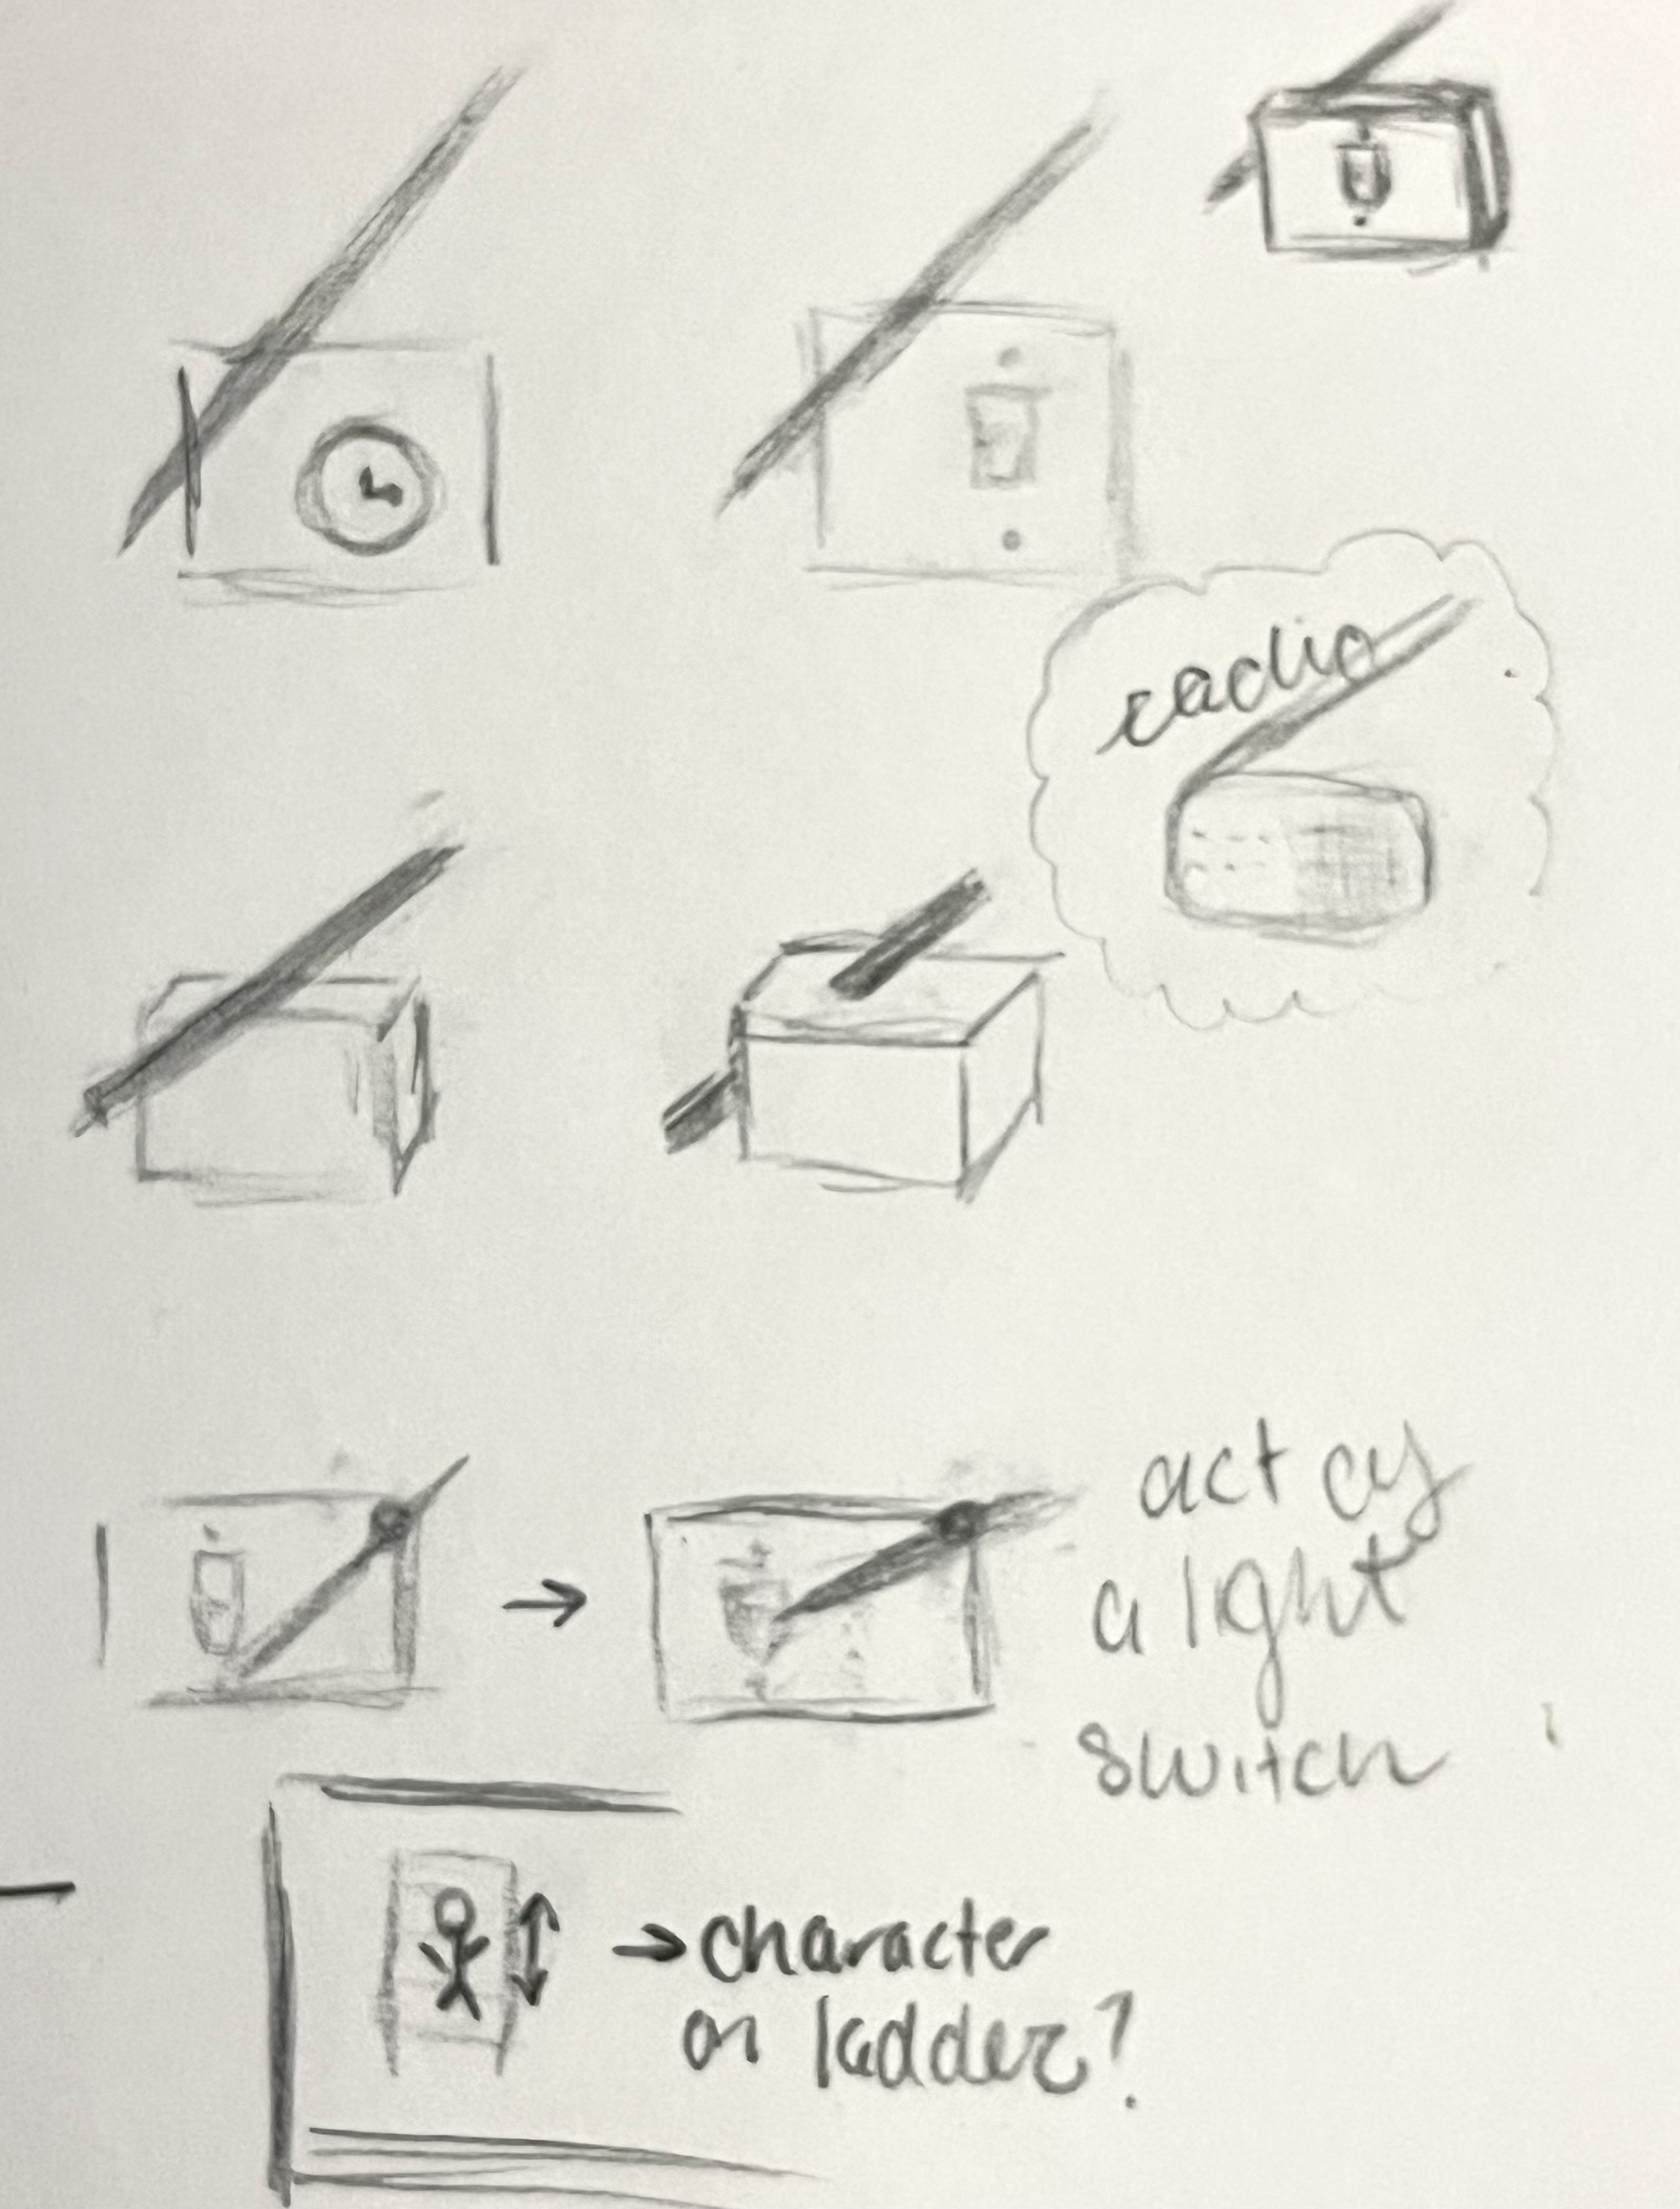 radio
act as
a light
switch
character
on ladder?